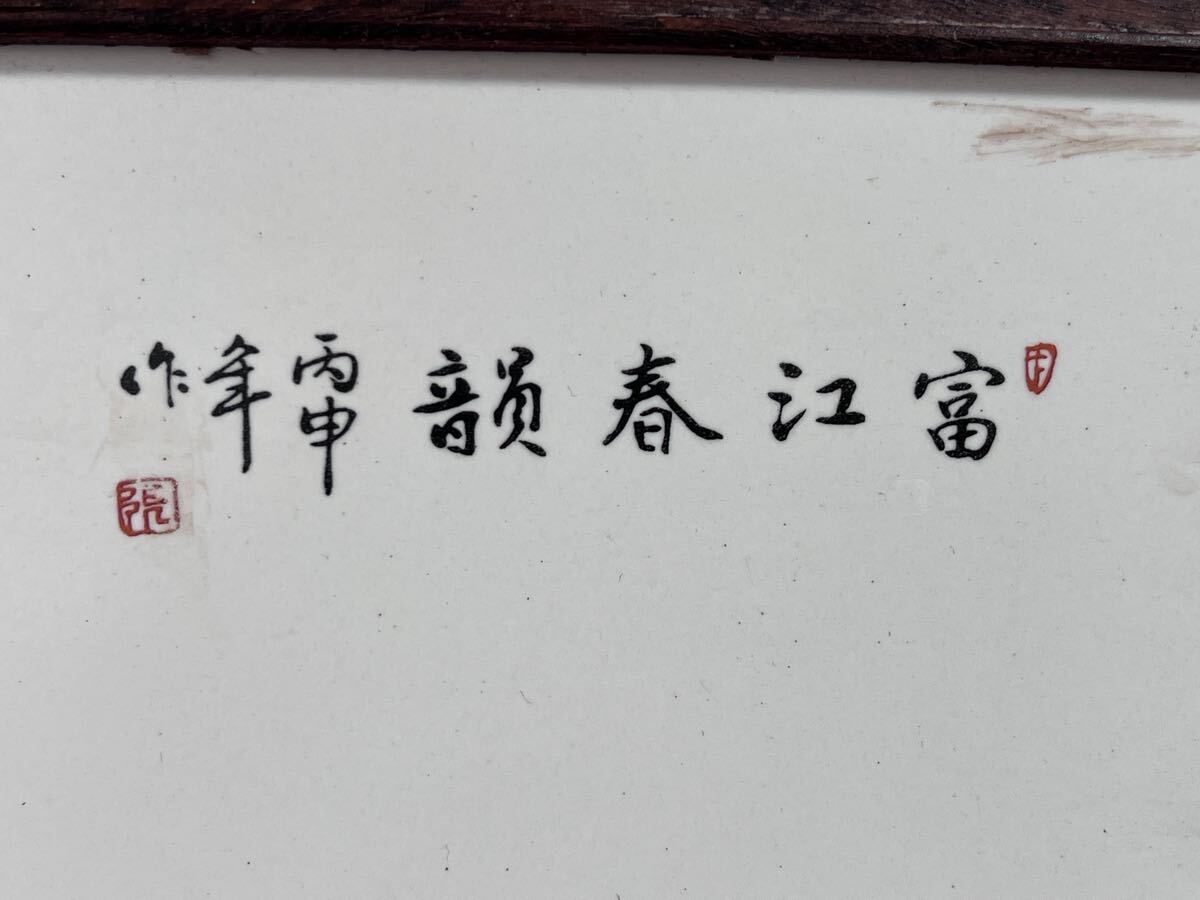 富江春韻
丙申年作